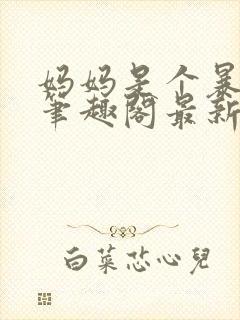 妈妈是个暴
笔趣阁最新
白菜芯心兒